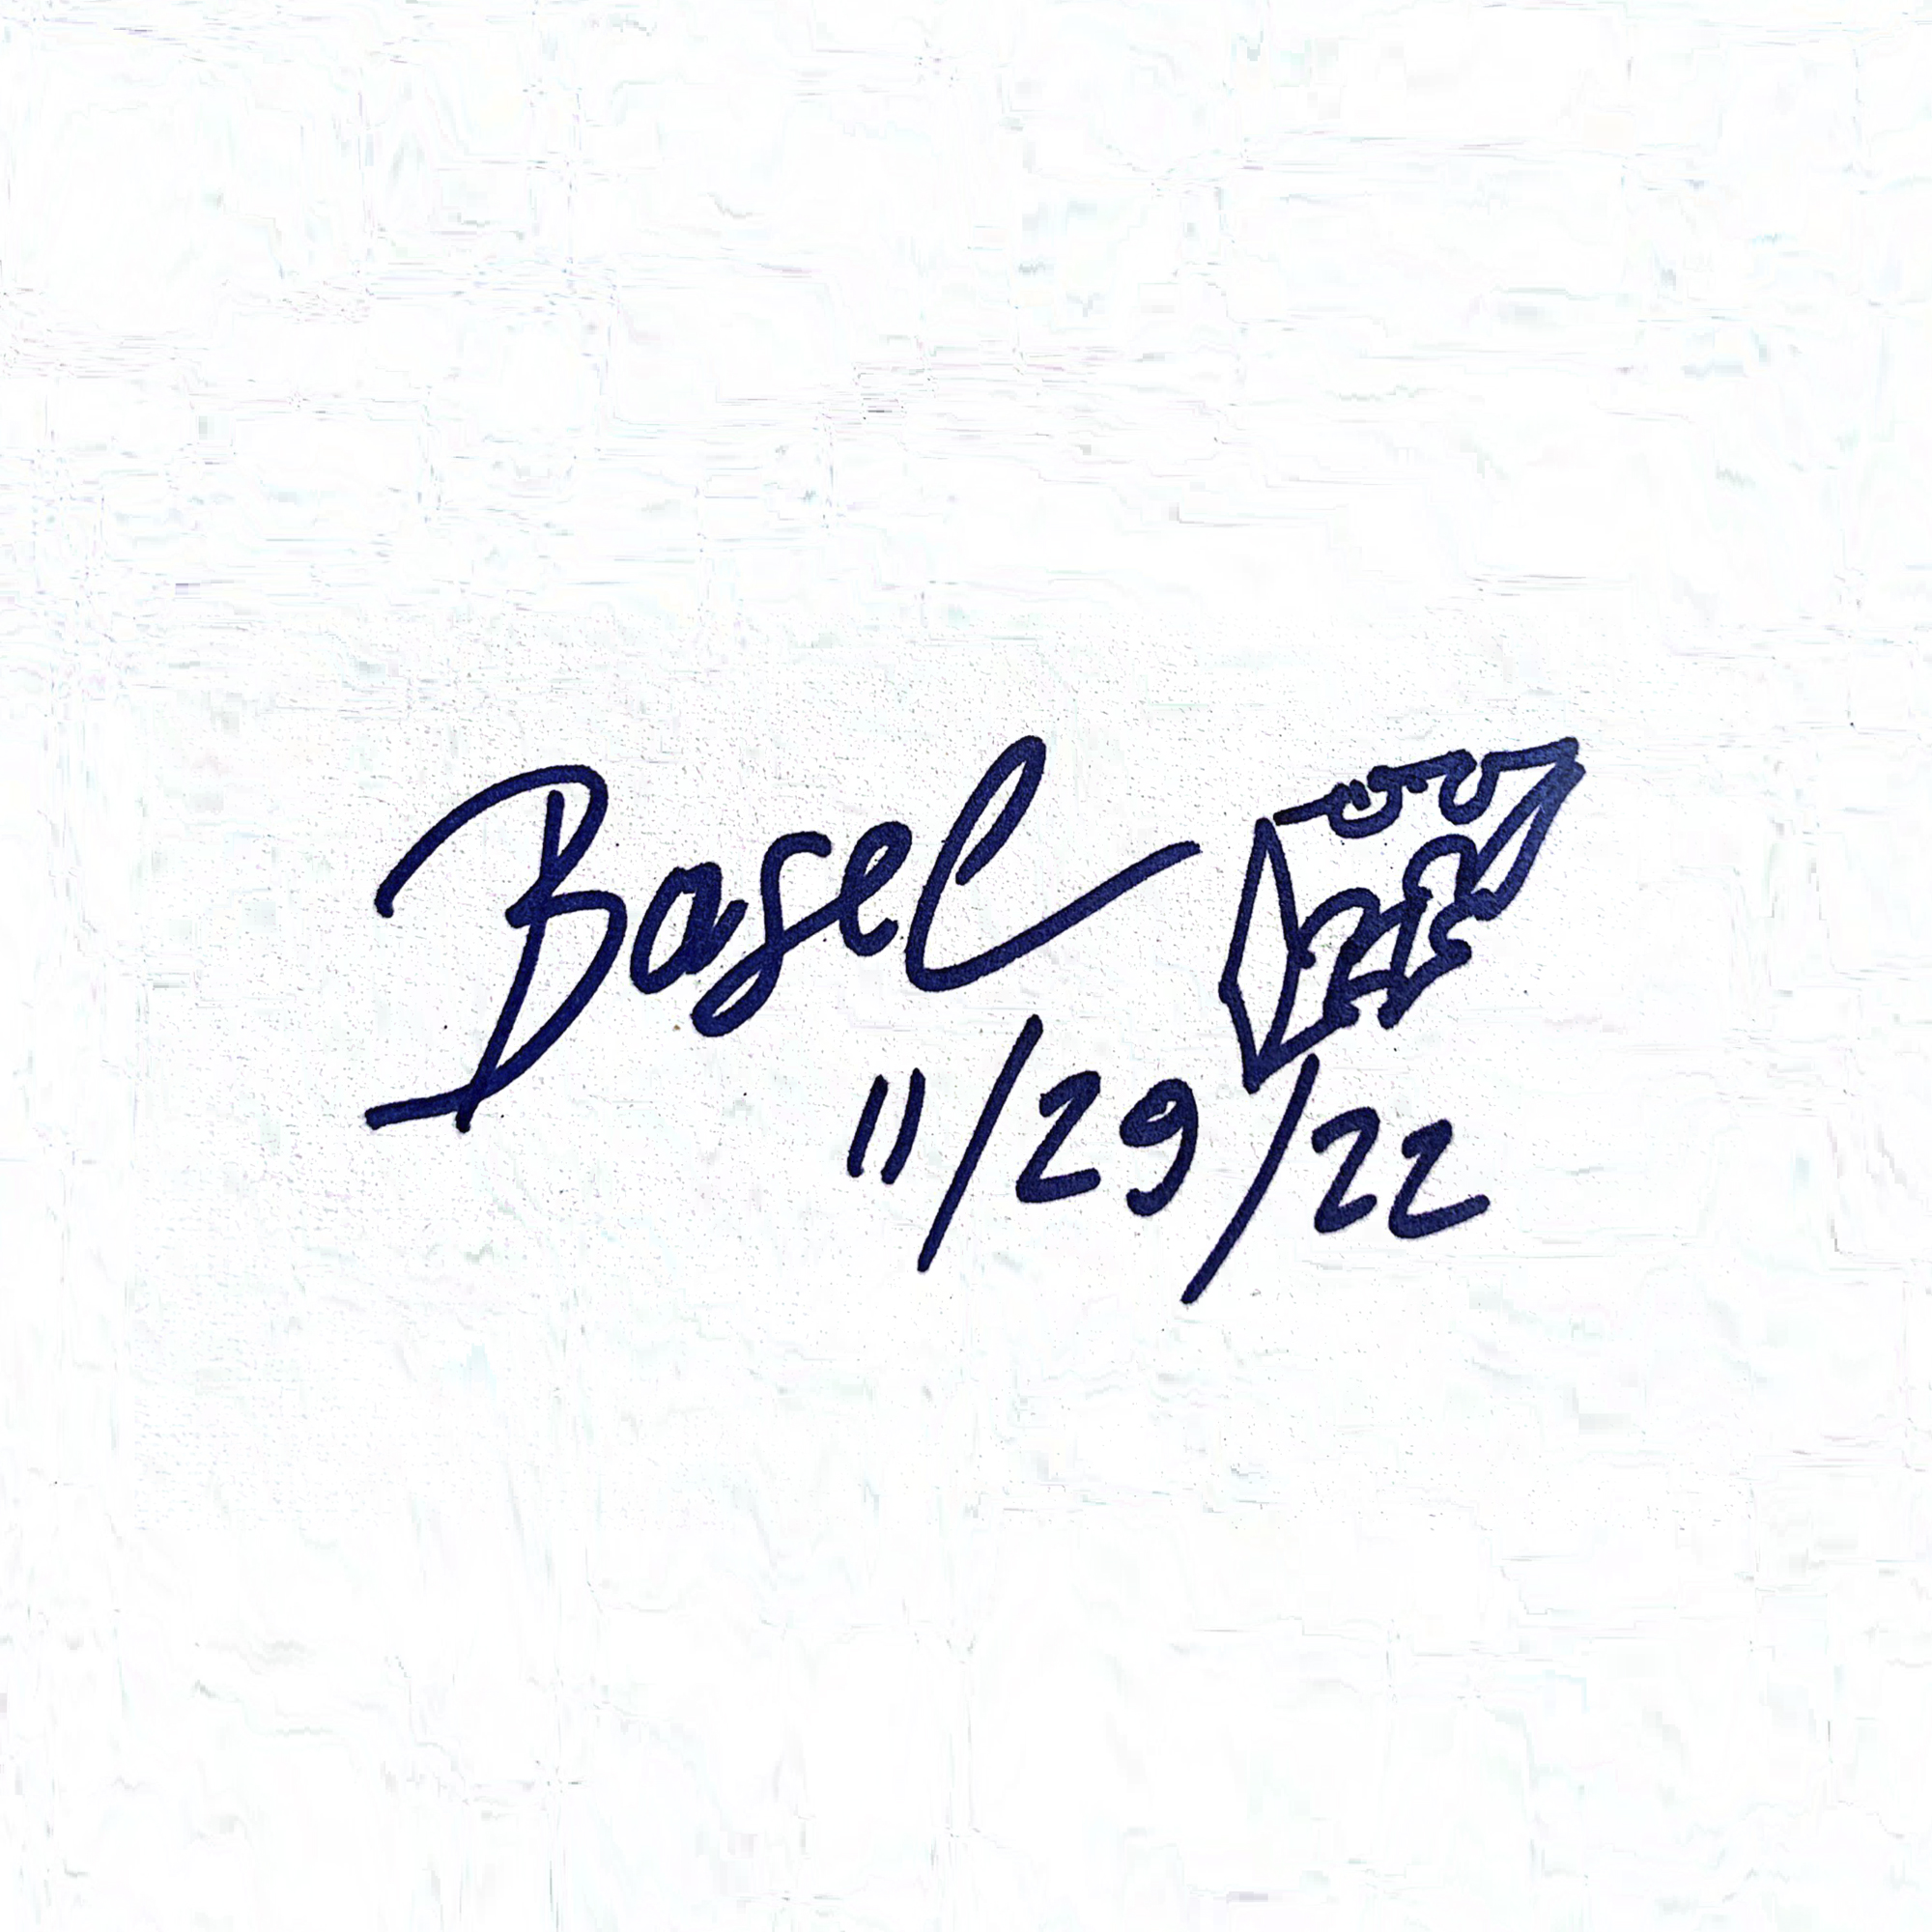 Basel
11/29/22